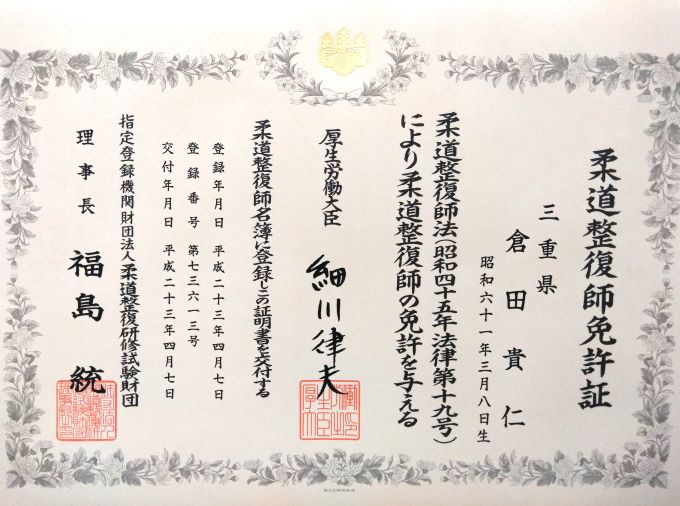 柔道整復師免許証
三重県
倉田貴仁
昭和六十一年三月八日生
柔道整復師法(昭和四十五年法律第十九号)
により柔道整復師の免許を与える
厚生労働大臣
細川律夫
柔道整復師名簿に登録しこの証明書を交付する
登録年月日 平成二十三年四月七日
登録番号 第七三六一三号
交付年月日 平成二十三年四月七日
指定登録機関財団法人柔道整復研修試験財団
理事長 福島統